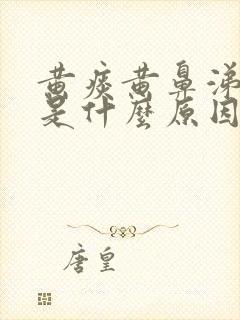 黄痰黄鼻涕
是什麼原因
唐皇